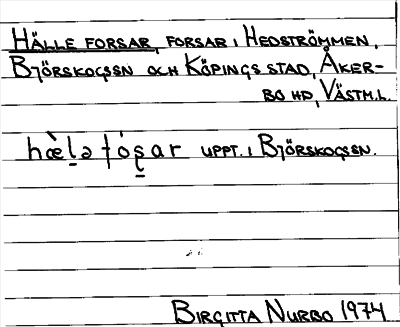 HÄLLE FORSAR, FORSAR I HEDSTRÖMMEN,
BJÖRSKOGSSN OCH KÖPINGS STAD, ÅKER-
BO HD, VÄSTM.L.
hæ̀l̠ə fós̠ar UPPT. I BJÖRSKOGSSN.
BIRGITTA NURBO 1974